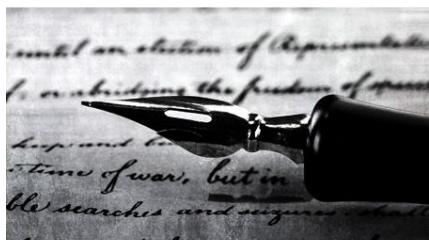 until an election of Representatives
f, or abridging the freedom of speec
keep and be
time of war, but in
ble searches and seizures shall